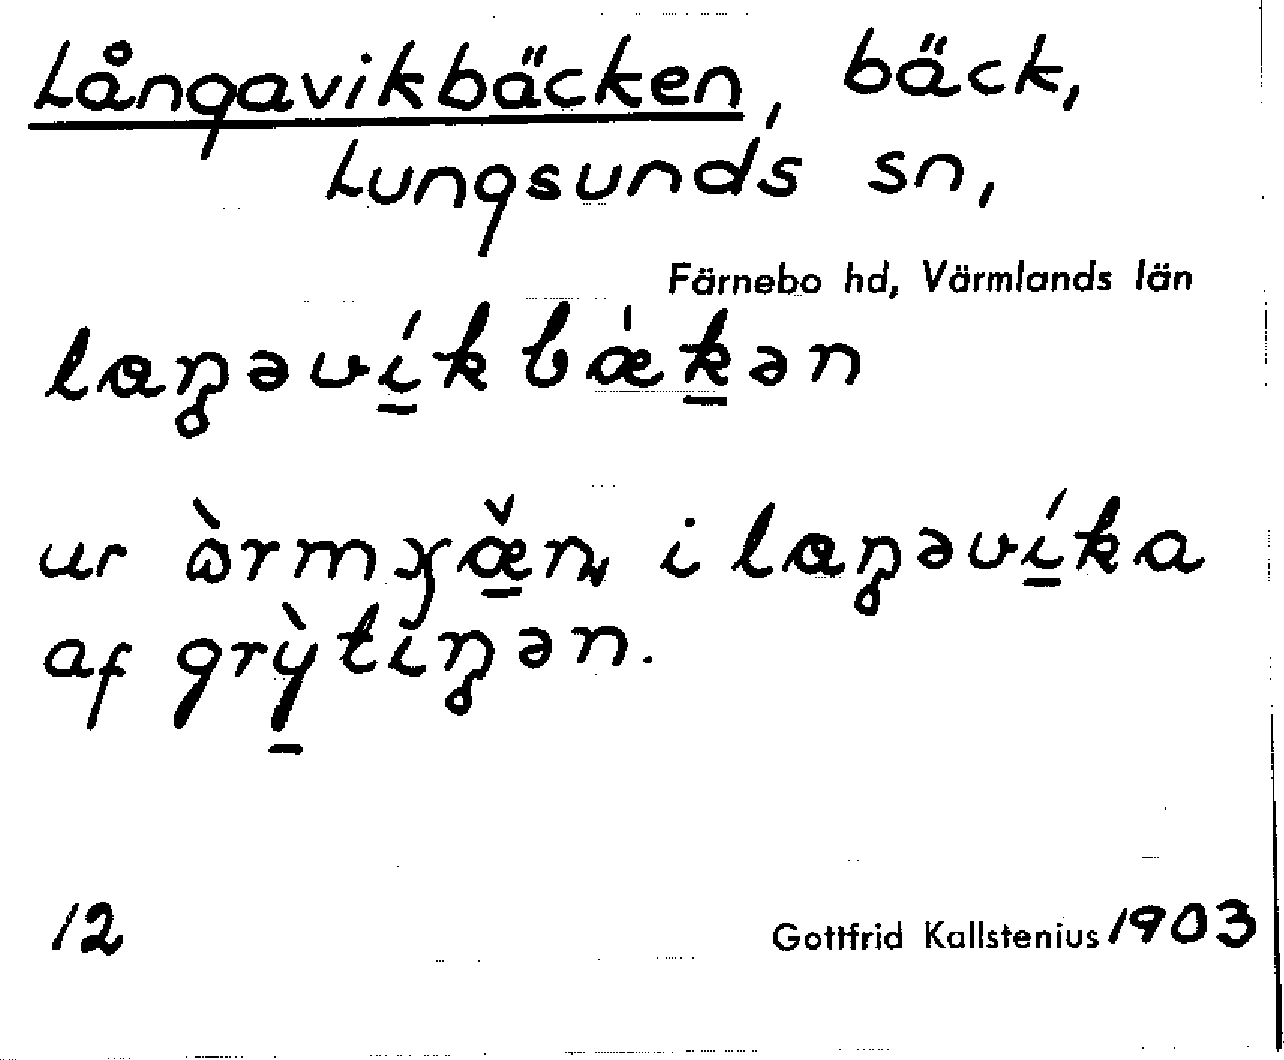 Långavikbäcken, bäck,
Lungsunds sn,
Färnebo hd, Värmlands län
laŋəví̱kbǽḵən
ur ὼrmɣæ̱̌ɳ i laŋəví̱ka
af grỳ̱tiŋən.
12 Gottfrid Kallstenius 1903